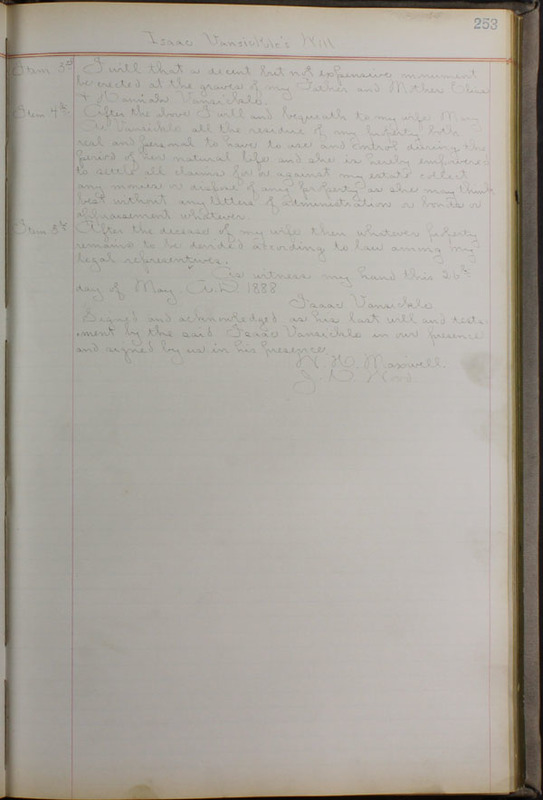 253
Isaac Vansickle's Will
Item 3rd I will that a decent but not expensive monument
be erected at the graves of my Father and Mother
& Hannah Vansickle.
Item 4th After the above I will and bequeath to my wife Mary
Vansickle all the residue of my property both
real and personal to have to use and control during the
period of her natural life and she is hereby empowered
to settle all claims for or against my estate collect
any monies or dispose of any property as she may think
best without any letters of administration or bonds or
appraisement whatever.
Item 5th After the decease of my wife then whatever property
remains to be devided according to law among my
legal representives.
As witness my hand this 26th
day of May. A.D 1888
Isaac Vansickle
Signed and acknowledged as his last will and testa-
ment by the said Isaac Vansickle in our presence
and signed by us in his presence
W. H. Maxwell.
J. D.